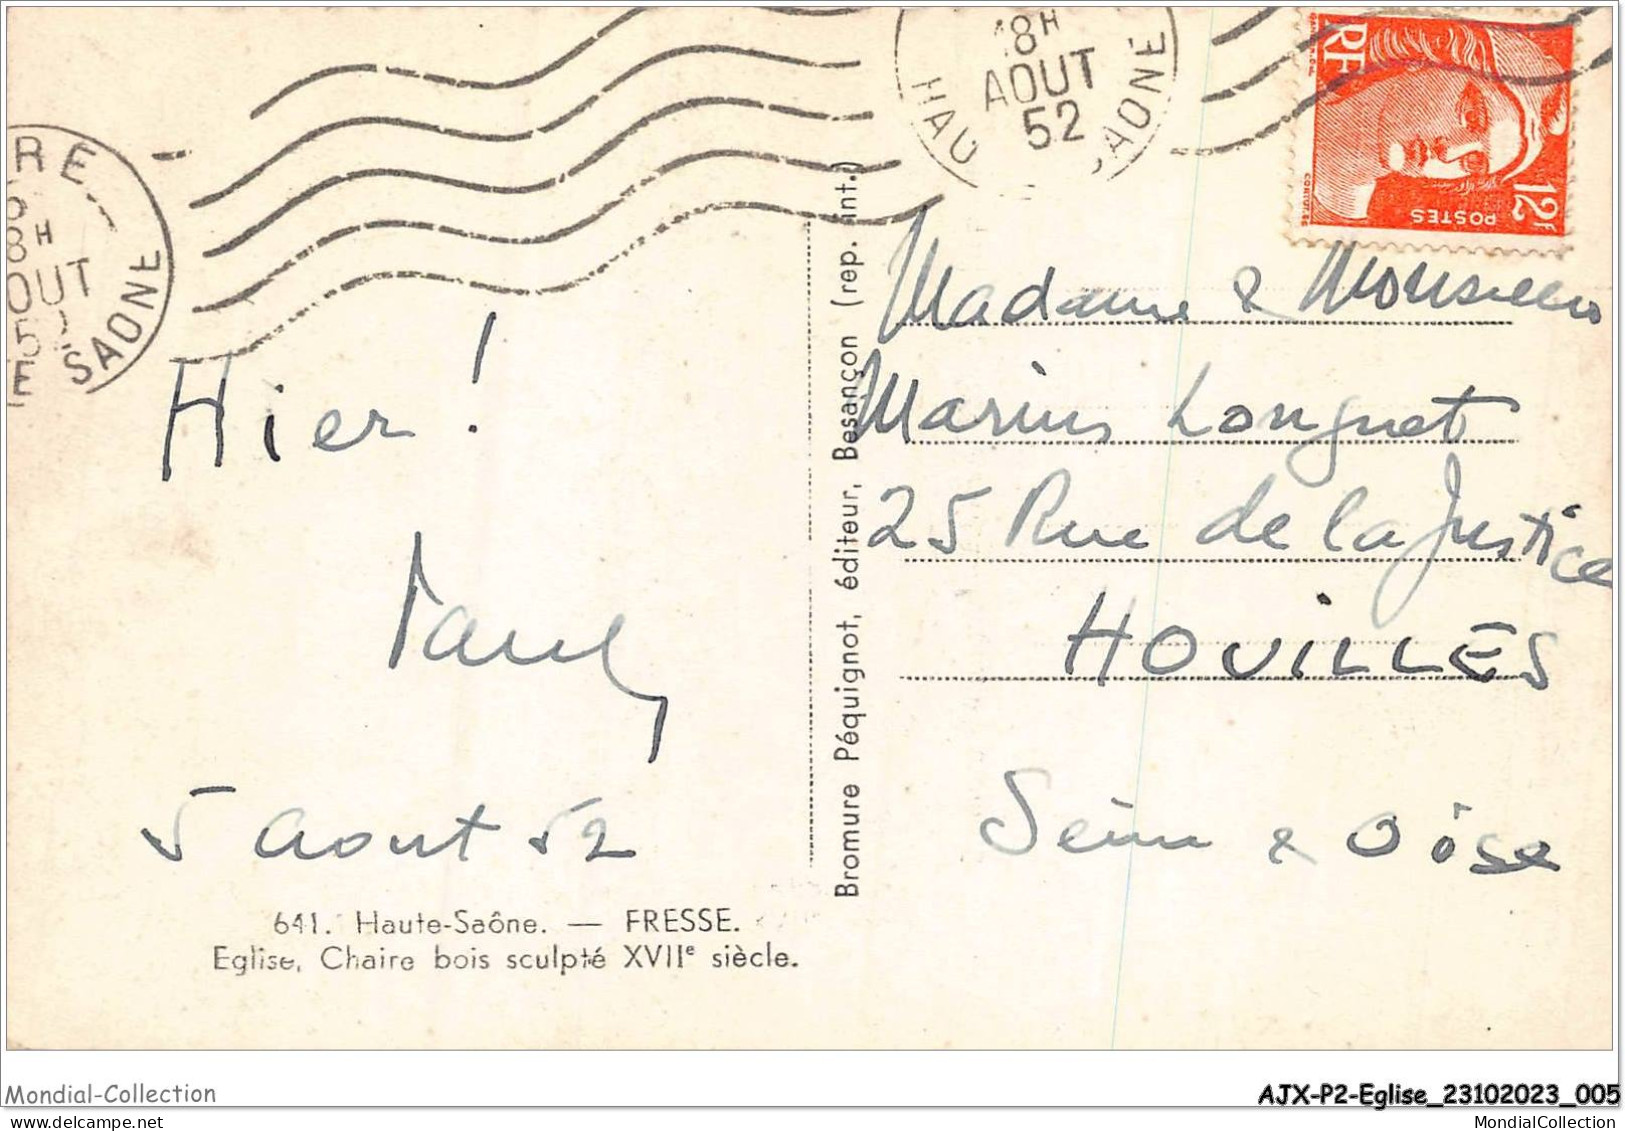 RE
8H
OUT
5
E SAONE
18H
AOUT
52
HAU SAONE
RF
POSTES
12F
Hier !
Paul
5 Aout 52
641. Haute-Saône. — FRESSE.
Eglise, Chaire bois sculpté XVIIe siècle.
Bromure Péquignot, éditeur, Besançon (rep. int.)
Madame & Monsieur
Marius Longuet
25 Rue de la Justice
HOUILLES
Seine & Oise
Mondial-Collection
AJX-P2-Eglise_23102023_005
mondialcollection.delcampe.com
MondialCollection